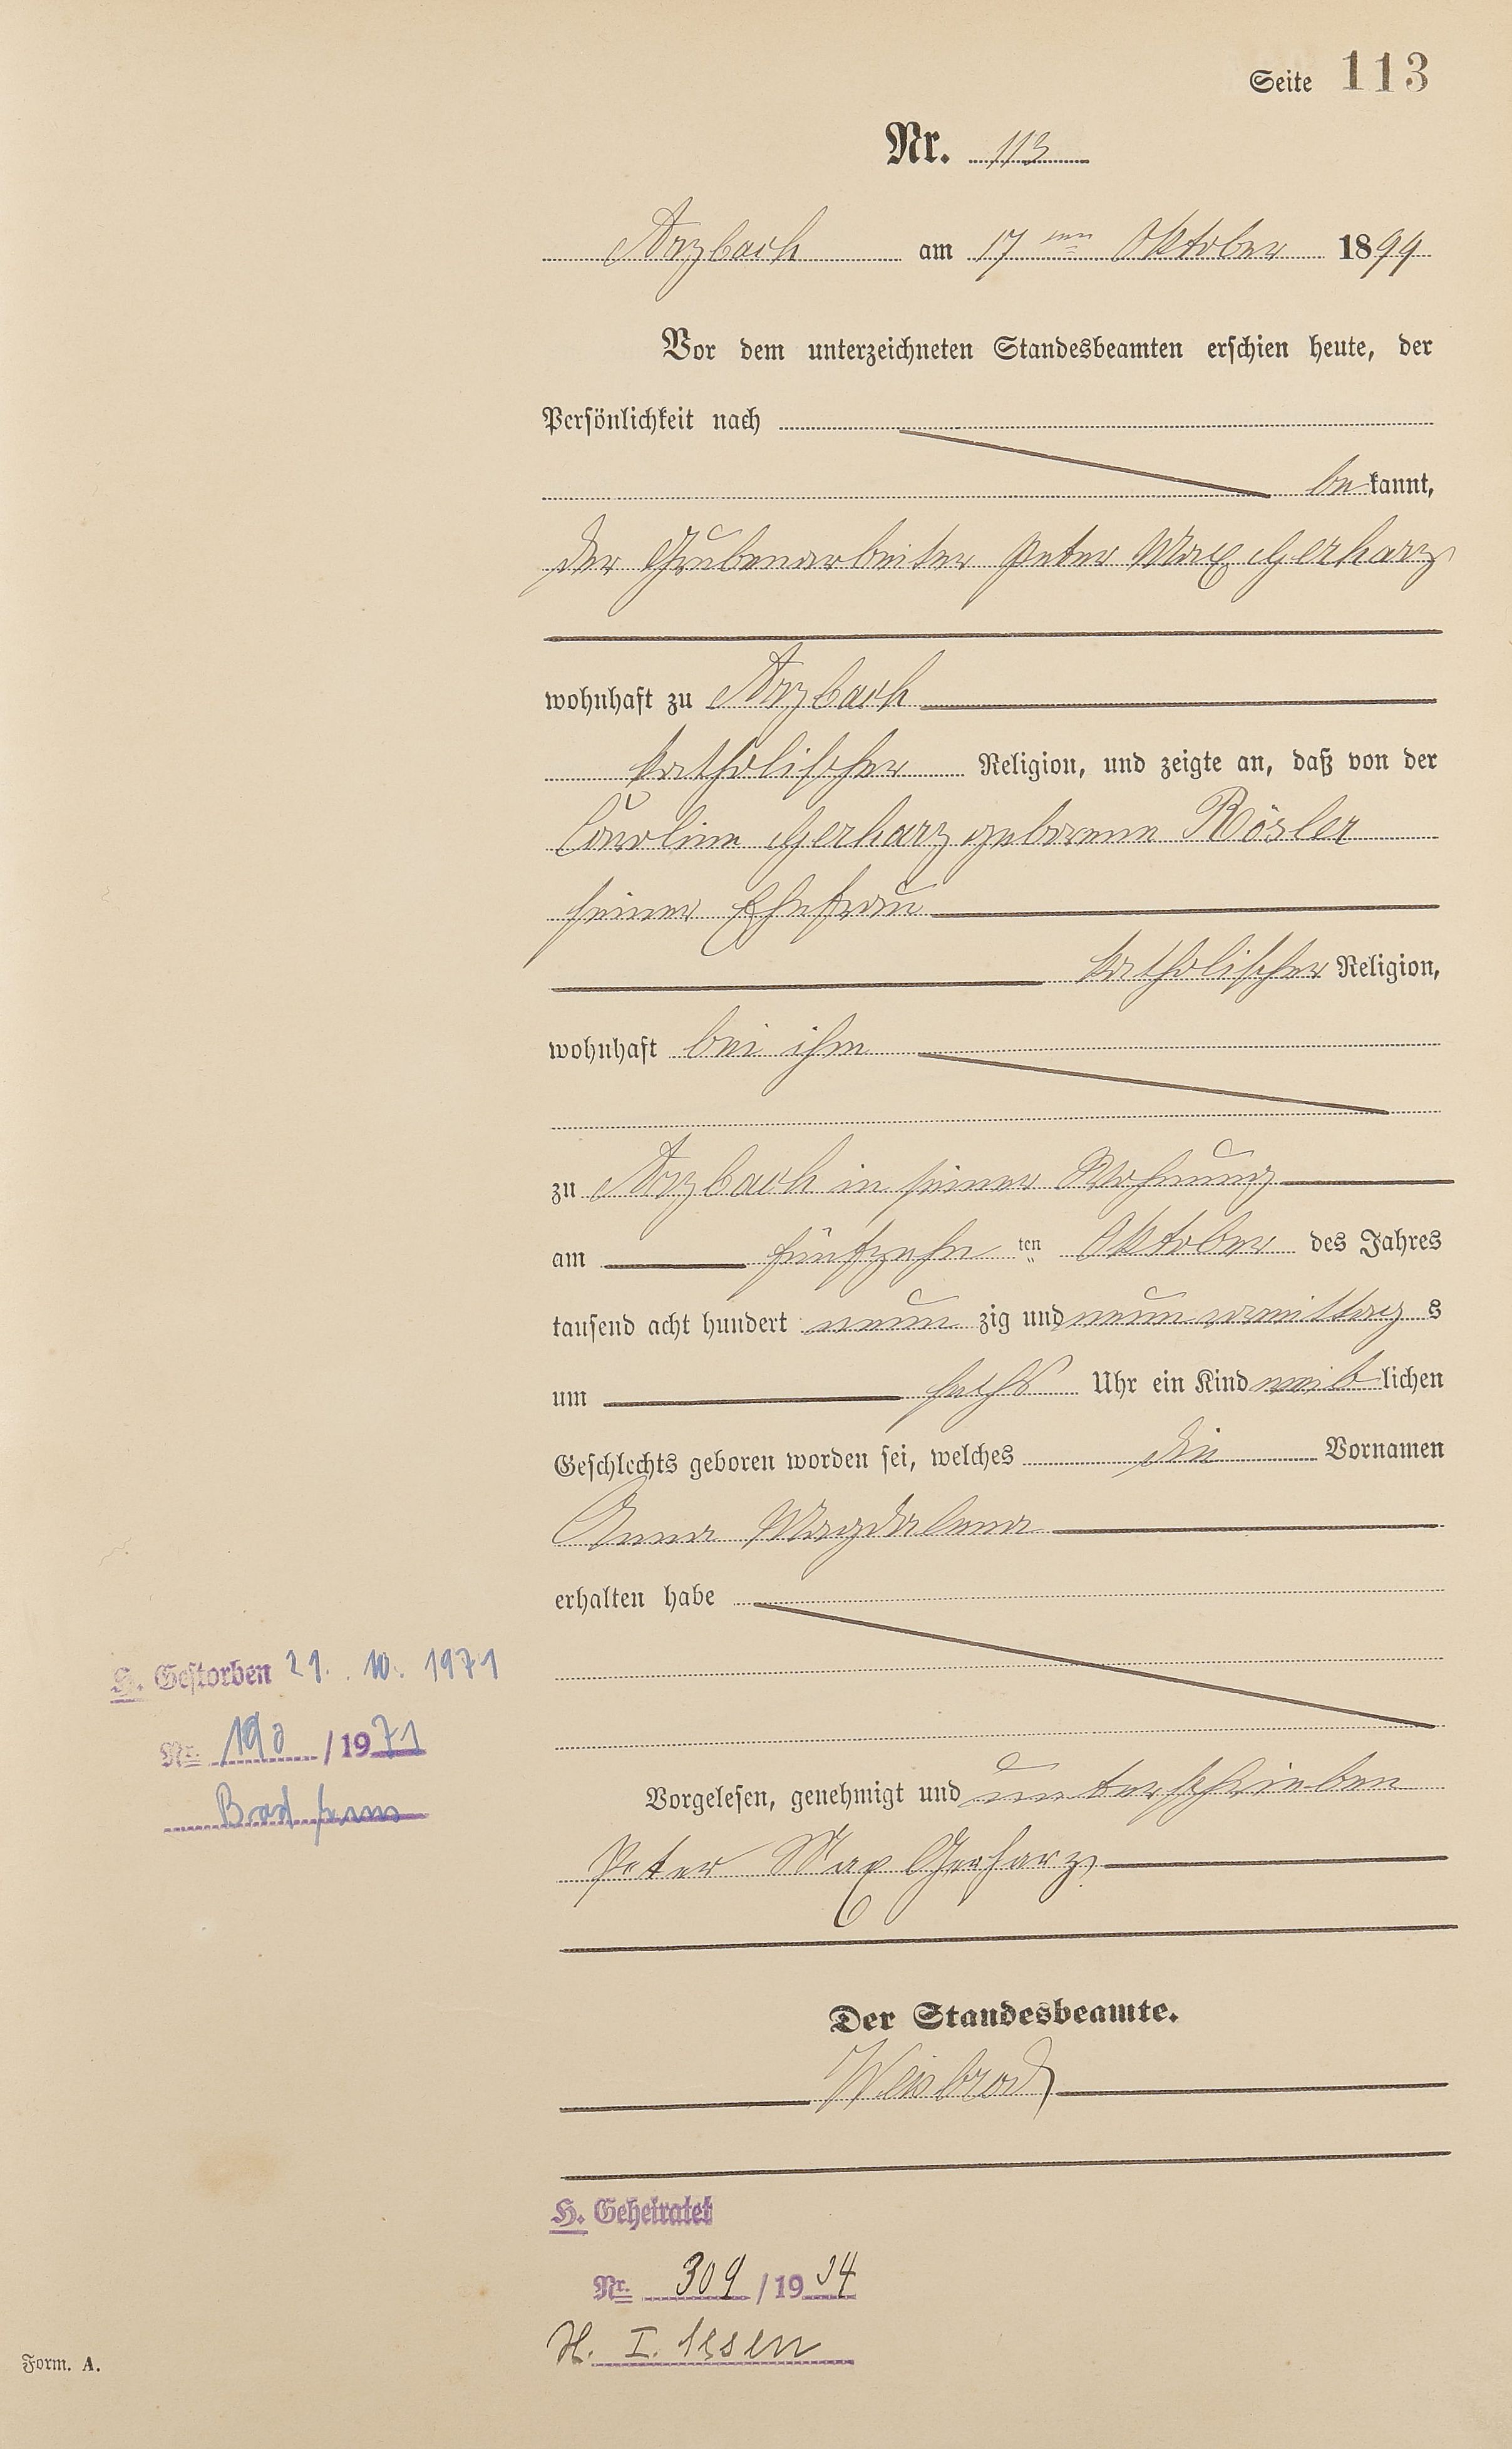 Seite 113
Nr. 113
Arzbach am 17ten Oktober 1899
Vor dem unterzeichneten Standesbeamten erschien heute, der
Persönlichkeit nach
bekannt,
der Grubenarbeiter Peter Max Gerharz
wohnhaft zu Arzbach
katholischer Religion, und zeigte an, daß von der
Caroline Gerharz geborenen Rösler
seiner Ehefrau
katholischer Religion,
wohnhaft bei ihm
zu Arzbach in seiner Wohnung
am fünfzehn ten Oktober des Jahres
tausend acht hundert neun zig und neun vormittags
um sechs Uhr ein Kind weiblichen
Geschlechts geboren worden sei, welches die Vornamen
Anna Magdalena
erhalten habe
H. Gestorben 21. 10. 1971
Nr. 190 / 1971
Bad Ems
Vorgelesen, genehmigt und unterschrieben
Peter Max Gerharz.
Der Standesbeamte.
Weisbrod
H. Geheiratet
Nr. 309 / 1934
St. I. Essen
Form. A.